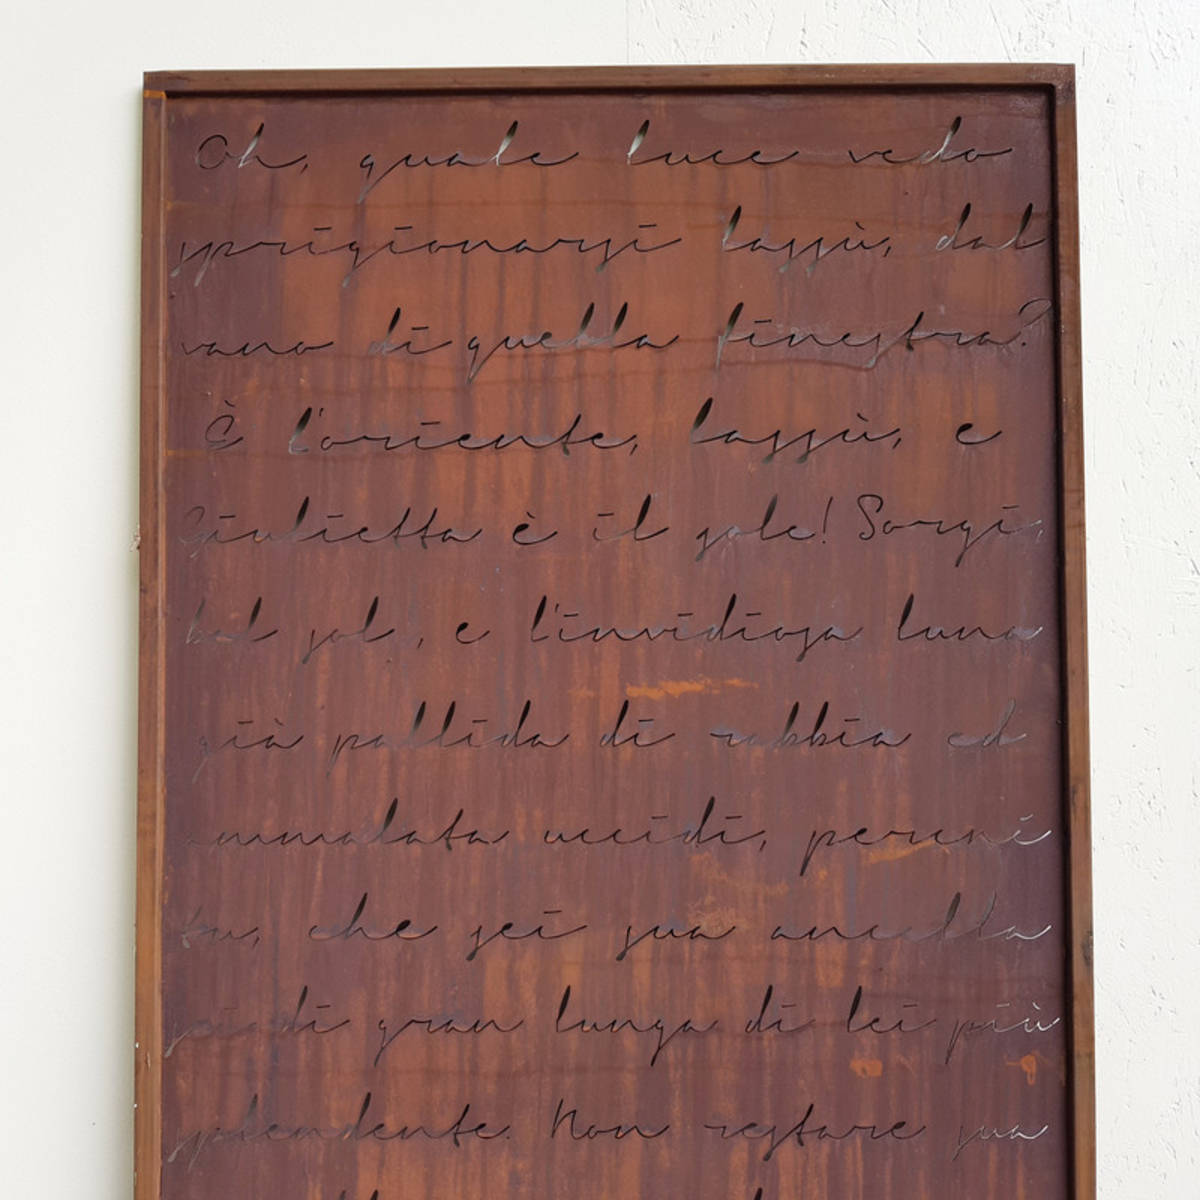 Oh, quale luce vedo
sprigionarsi lassù, dal
vano di quella finestra?
È l'oriente, lassù, e
Giulietta è il sole! Sorgi,
bel sole, e l'invidiosa luna
già pallida di rabbia ed
ammalata uccidi, perché
tu, che sei sua ancella
sei di gran lunga di lei più
splendente. Non restare sua